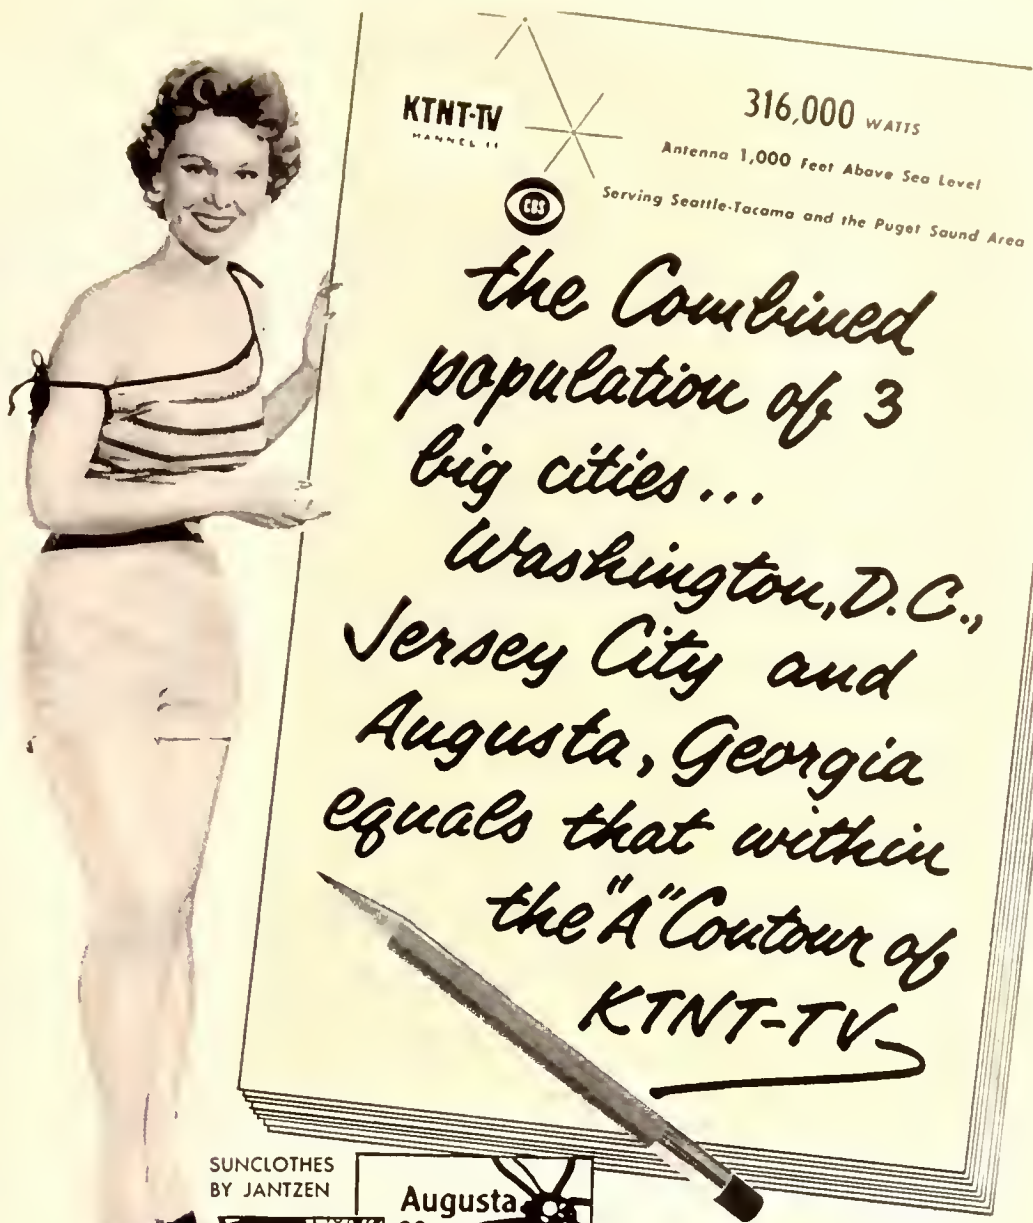 KTNT-TV
CHANNEL 11
316,000 WATTS
Antenna 1,000 Feet Above Sea Level
CBS
Serving Seattle-Tacoma and the Puget Sound Area
the Combined
population of 3
big cities...
Washington, D.C.,
Jersey City and
Augusta, Georgia
equals that within
the "A" Contour of
KTNT-TV
SUNCLOTHES
BY JANTZEN
Augusta